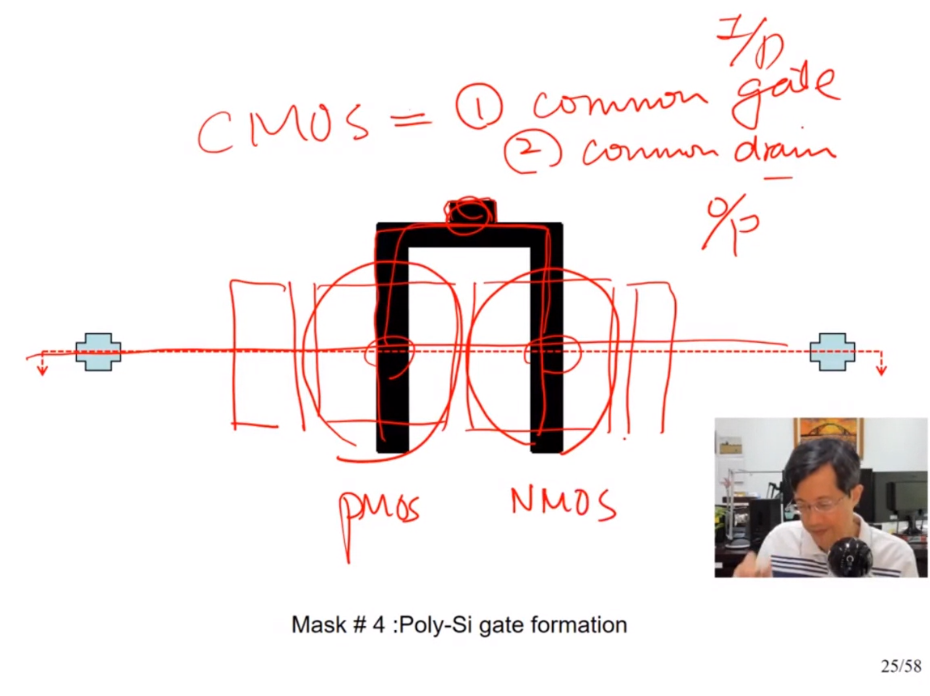 I/P
CMOS = ① common gate
② common drain
O/P
PMOS NMOS
Mask # 4 :Poly-Si gate formation
25/58